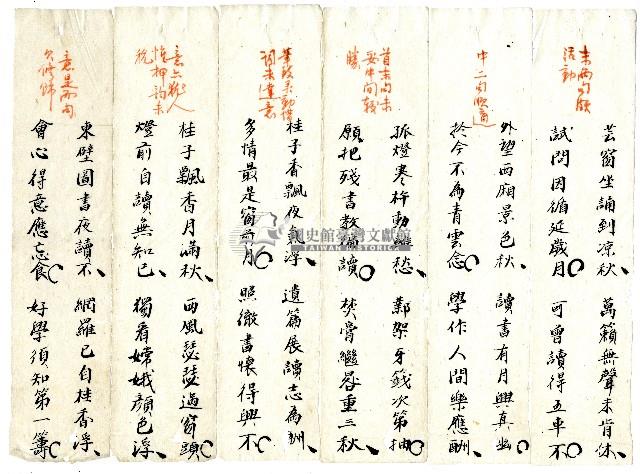 末兩句頗
活動
芸窗坐誦到凉秋 萬籟無聲未肯休
試問因循延歲月 可曾讀得五車不
中二句順適
外望西廂景色秋 讀書有月興真幽
於今不為青雲念 學作人間樂應酬
首末句未
妥中間較
勝
孤燈寒杵動愁 鄴架牙籤次第抽
願把殘書教讀 焚膏繼晷重三秋
筆致動惜
詞未達意
桂子香飄夜氣浮 遺篇展讀志為酬
多情最是窗前月 照徹書懷得興不
意亦動人
惟押韵未
桂子飄香月滿秋 西風瑟瑟過窗頭
燈前自讀無知己 獨看嫦娥顏色浮
意是而句
欠修飾
東壁圖書夜讀不 網羅已自桂香浮
會心得意應忘食 好學須知第一籌
國史館臺灣文獻館
TAIWAN HISTORICA